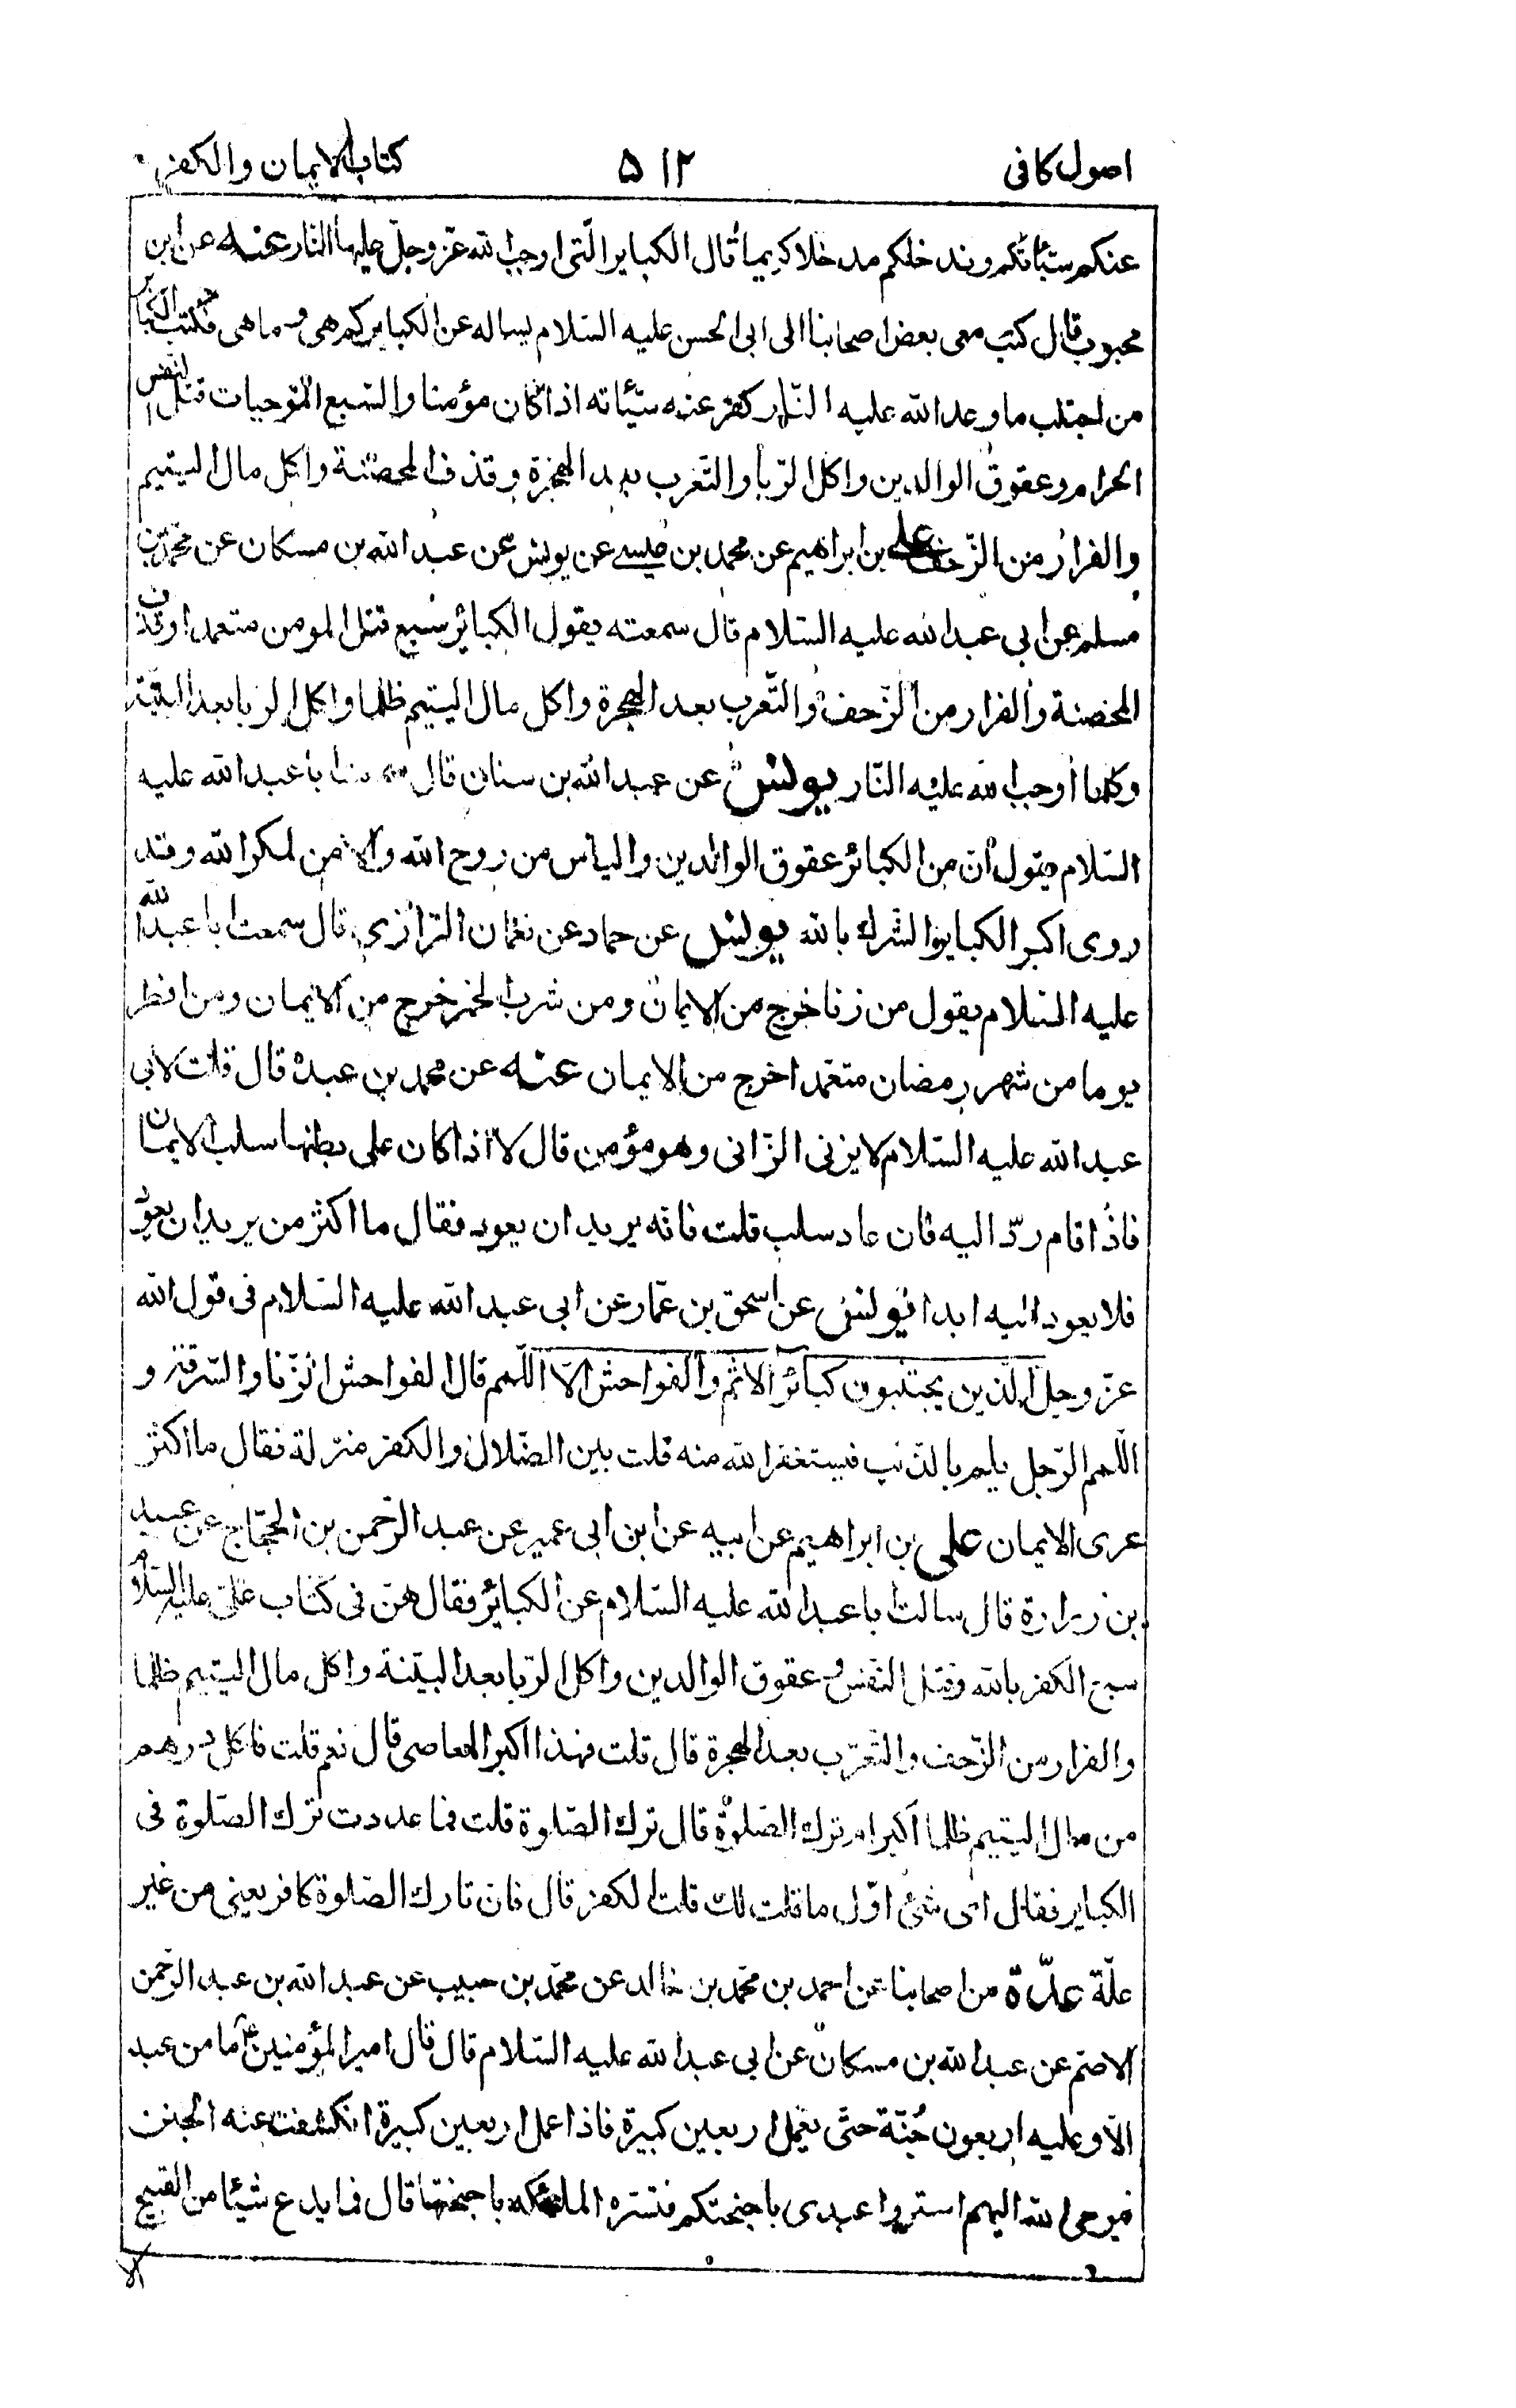 اصول کافی ۵۱۲ کتاب الایمان والکفر
عنکم سیّئاتکم وندخلکم مدخلا کریما قال الکبایر الّتی اوجب الله عزّ وجلّ علیها النّار عنه عن ابن
محبوب قال کتب معی بعض اصحابنا الی ابی الحسن علیه السّلام یساله عن الکبایر کم هی و ما هی فکتب الکبائر
من اجتنب ما وعد الله علیه النّار کفر عنه سیّئاته اذا کان مؤمنا والسّبع الموجبات قتل النّفس
الحرام وعقوق الوالدین واکل الرّبا والتّعرب بعد الهجرة وقذف المحصنة واکل مال الیتیم
والفرار من الزّحف علی بن ابراهیم عن محمد بن عیسے عن یونس عن عبد الله بن مسکان عن محمّد بن
مسلم عن ابی عبد الله علیه السّلام قال سمعته یقول الکبائر سبع قتل المومن متعمدا وقذف
المحصنة والفرار من الزّحف والتّعرب بعد الهجرة واکل مال الیتیم ظلما واکل الربا بعد البیّنة
وکلما اوجب الله علیه النّار یونس عن عبد الله بن سنان قال سمعت ابا عبد الله علیه
السّلام یقول انّ من الکبائر عقوق الوالدین والیاس من روح الله والامن لمکر الله وقد
روی اکبر الکبایر الشّرك بالله یونس عن حماد عن نعمان الرّازی قال سمعت ابا عبد الله
علیه السّلام یقول من زنا خرج من الایمان ومن شرب الخمر خرج من الایمان ومن افطر
یوما من شهر رمضان متعمّدا خرج من الایمان عنه عن محمد بن عبده قال قلت لابی
عبد الله علیه السّلام لا یزنی الزّانی وهو مؤمن قال لا اذا کان علی بطنها سلب الایمان
فاذا قام ردّ الیه فان عاد سلب قلت فانّه یرید ان یعود فقال ما اکثر من یرید ان یعود
فلا یعود الیه ابدا یونس عن اسحق بن عمّار عن ابی عبد الله علیه السّلام فی قول الله
عزّ وجلّ الّذین یجتنبون کبائر الاثم والفواحش الّا اللّمم قال الفواحش الزّنا والسّرقة و
اللّمم الرّجل یلم بالذّنب فیستغفر الله منه قلت بین الضّلال والکفر منزلة فقال ما اکثر
عری الایمان علی بن ابراهیم عن ابیه عن ابن ابی عمیر عن عبد الرّحمن بن الحجّاج عن عبید
بن زرارة قال سالت ابا عبد الله علیه السّلام عن الکبائر فقال هنّ فی کتاب علیّ علیه السّلام
سبع الکفر بالله وقتل النّفس وعقوق الوالدین واکل الرّبا بعد البیّنة واکل مال الیتیم ظلما
والفرار من الزّحف والتّعرّب بعد الهجرة قال قلت فهذا اکبر المعاصی قال نعم قلت فاکل درهم
من مال الیتیم ظلما اکبر ام ترك الصّلوة قال ترك الصّلوة قلت فما عددت ترك الصّلوة فی
الکبایر فقال ای شئ اوّل ما قلت لك قلت الکفر قال فان تارك الصّلوة کافر یعنی من غیر
علّة عدّة من اصحابنا عن احمد بن محمّد بن خالد عن محمّد بن حبیب عن عبد الله بن عبد الرّحمن
الاصمّ عن عبد الله بن مسکان عن ابی عبد الله علیه السّلام قال قال امیر المؤمنین ع ما من عبد
الّا وعلیه اربعون جُنّة حتّی یعمل اربعین کبیرة فاذا عمل اربعین کبیرة انکشفت عنه الجنن
فیوحی الله الیهم استروا عبدی باجنحتکم فتستره الملئکة باجنحتها قال فما یدع شیئا من القبیح
الا